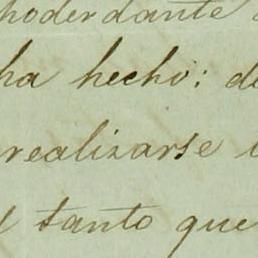 hoderdante
ha hecho: de
realizarse
tanto que